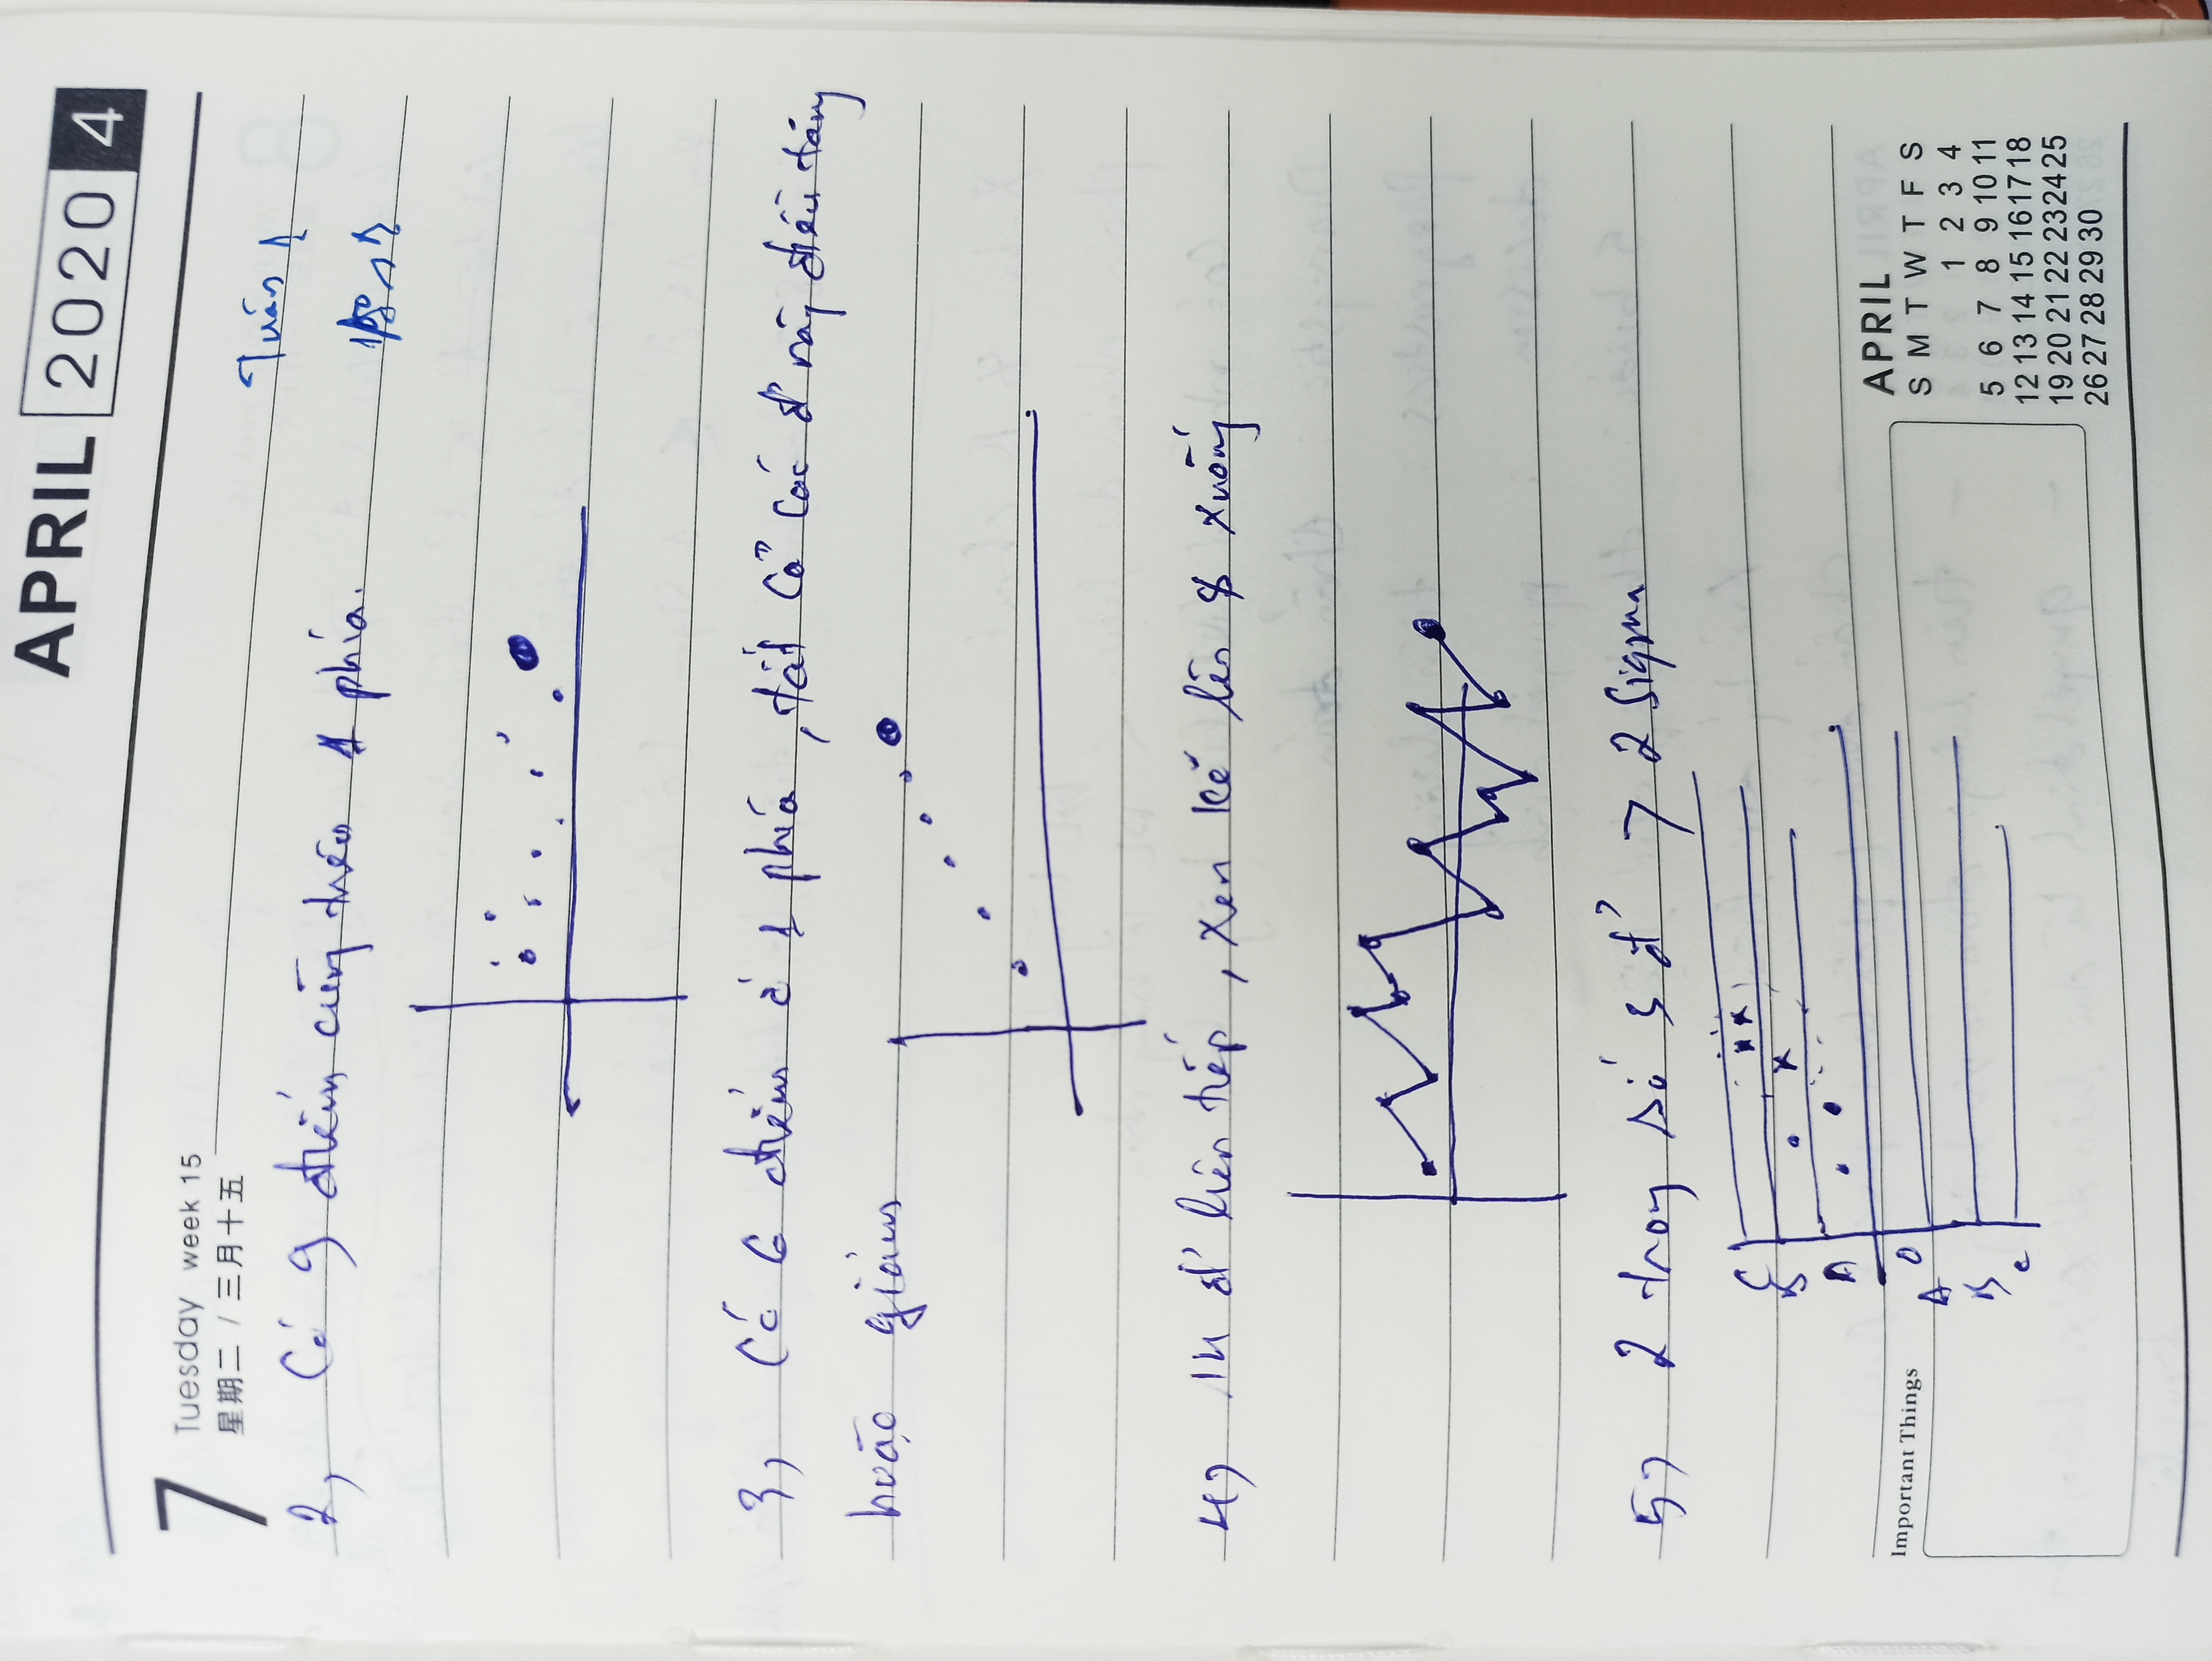 APRIL 2020 4
7 Tuesday week 15
星期二 / 三月十五
Tuần 1
2, Có 9 điểm cùng trên 1 phía.
3, Có 6 điểm ở 1 phía, tất cả các đ' này đều tăng
hoặc giảm
4, 14 đ' liên tiếp, xen kẽ lên & xuống
5, 2 trong số 3 đ' > 2 Sigma
C
B
A
O
A
B
C
Important Things
APRIL
S M T W T F S
1 2 3 4
5 6 7 8 9 10 11
12 13 14 15 16 17 18
19 20 21 22 23 24 25
26 27 28 29 30